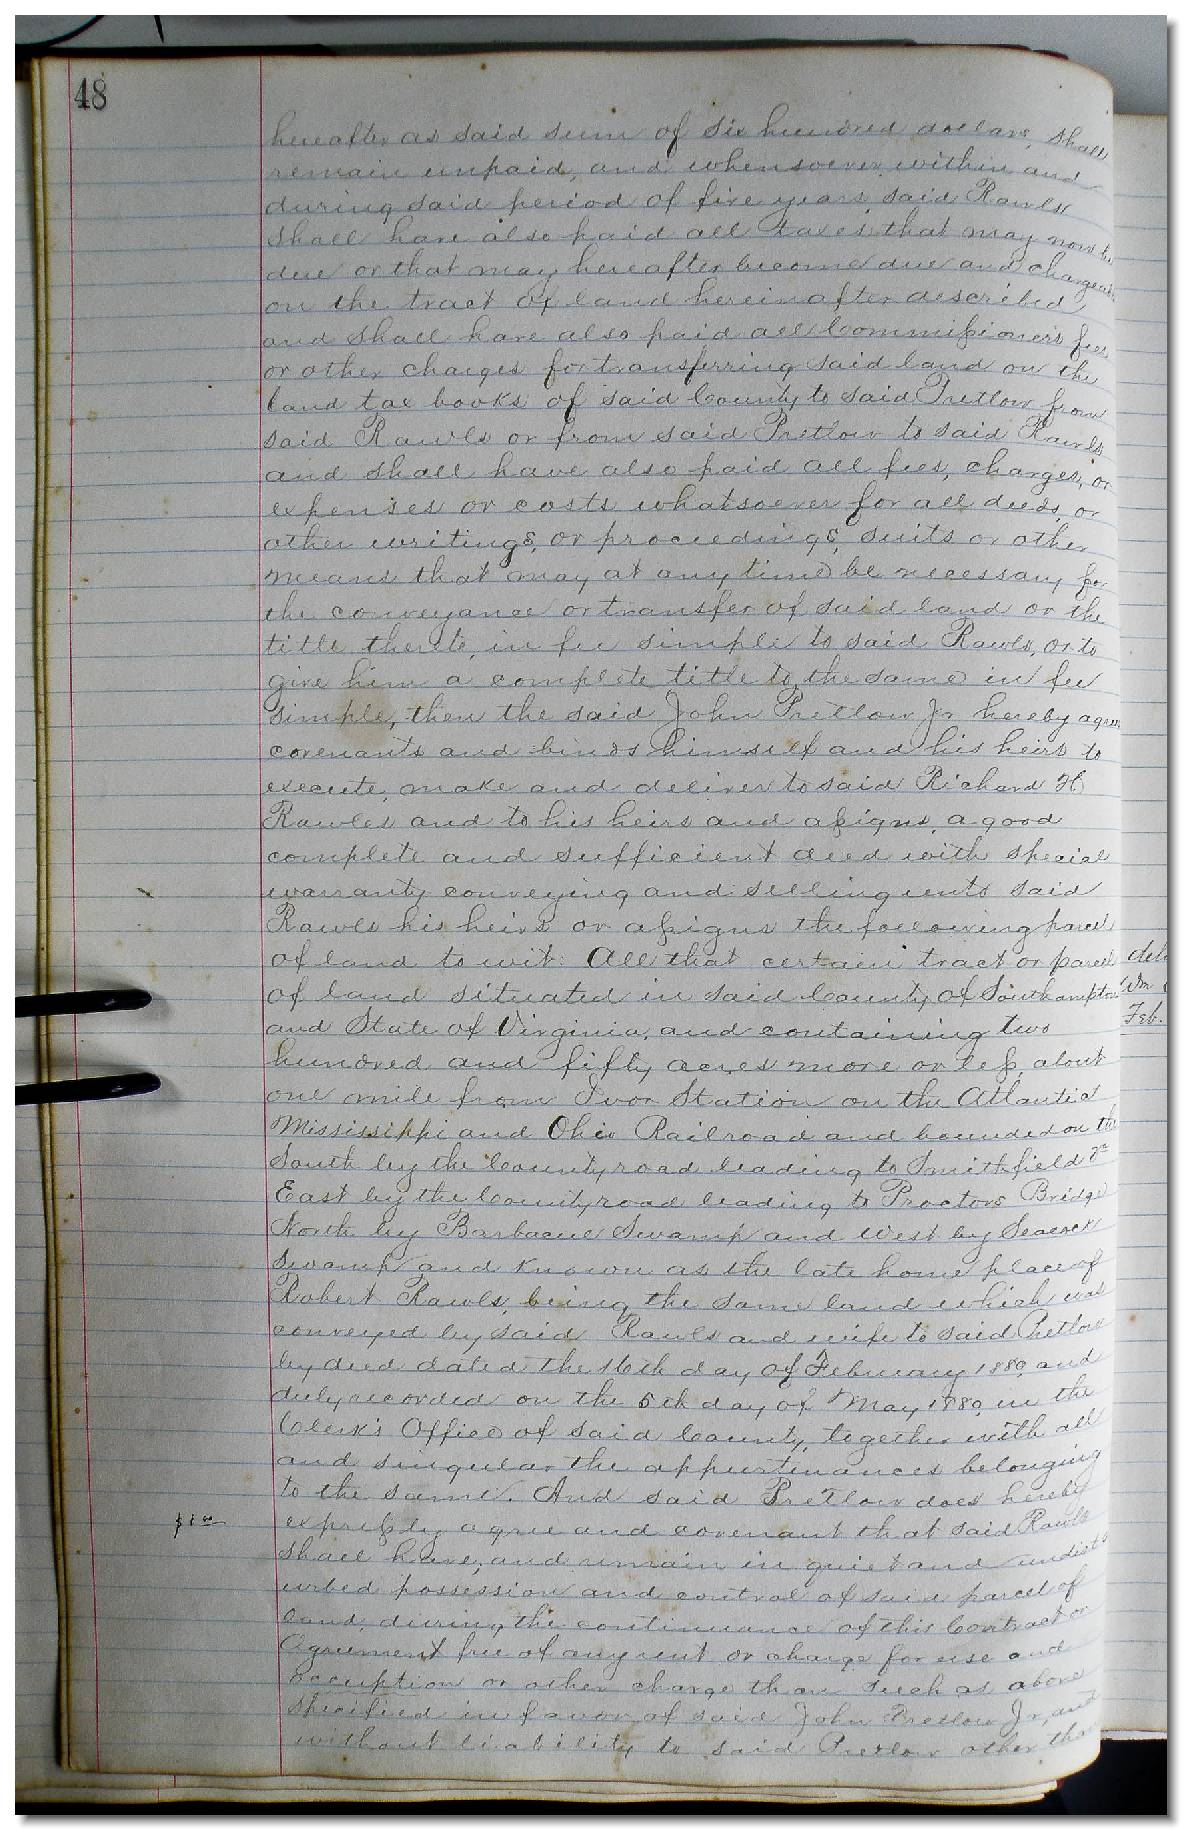 48
hereafter as said sum of six hundred dollars, shall
remain unpaid, and whensoever within and
during said period of five years, said Rawls
shall have also paid all taxes that may now be
due or that may hereafter become due and chargeable
on the tract of land hereinafter described
and shall have also paid all Commissioner's fees
or other charges for transferring said land on the
land tax books of said County to said Pretlow from
said Rawls or from said Pretlow to said Rawls
and shall have also paid all fees, charges, or
expenses or costs whatsoever for all deeds, or
other writings, or proceedings, suits or other
means that may at any time be necessary for
the conveyance or transfer of said land or the
title thereto, in fee simple to said Rawls, or to
give him a complete title to the same in fee
simple, then the said John Pretlow Jr hereby agrees
covenants and binds himself and his heirs to
execute, make and deliver to said Richard H
Rawles and to his heirs and assigns, a good
complete and sufficient deed with special
warranty conveying and selling unto said
Rawls his heirs or assigns the following parcel
of land to wit: All that certain tract or parcel
of land situated in said County of Southampton
and State of Virginia, and containing two
hundred and fifty acres more or less, about
one mile from Ivor Station on the Atlantic
Mississippi and Ohio Railroad and bounded on the
South by the County road leading to Smithfield
East by the County road leading to Proctors Bridge
North by Barbacue Swamp and West by Seacock
Swamp and known as the late home place of
Robert Rawls, being the same land which was
conveyed by said Rawls and wife to said Pretlow
by deed dated the 16th day of February 1880, and
duly recorded on the 5th day of May 1880, in the
Clerk's Office of said County, together with all
and singular the appurtenances belonging
to the same. And said Pretlow does hereby
$1.00 expressly agree and covenant that said Rawls
shall have, and remain in quiet and undist
urbed possession and control of said parcel of
land, during the continuance of this Contract or
Agreement free of any rent or charge for use and
occuption or other charge than such as above
specified in favor of said John Pretlow Jr, and
without liability to said Pretlow other than
Feb.